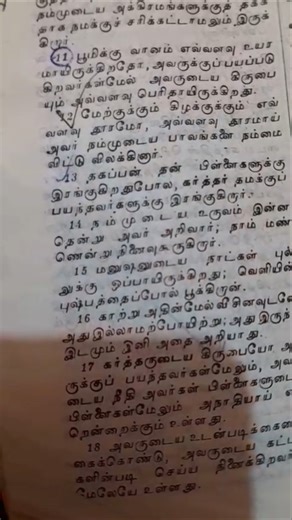 நம்முடைய அக்கிரமங்களுக்குத் தக்க
தாக நமக்குச் சரிக்கட்டாமலும் இருக்
கிறார்.
11 பூமிக்கு வானம் எவ்வளவு உயர
மாயிருக்கிறதோ, அவருக்குப்பயப்படு
கிறவர்கள்மேல் அவருடைய கிருபை
யும் அவ்வளவு பெரிதாயிருக்கிறது.
12 மேற்குக்கும் கிழக்குக்கும் எவ்
வளவு தூரமோ, அவ்வளவு தூரமாய்
அவர் நம்முடைய பாவங்களை நம்மை
விட்டு விலக்கினார்.
13 தகப்பன் தன் பிள்ளைகளுக்கு
இரங்குகிறதுபோல, கர்த்தர் தமக்குப்
பயந்தவர்களுக்கு இரங்குகிறார்.
14 நம்முடைய உருவம் இன்ன
தென்று அவர் அறிவார்; நாம் மண்
ணென்று நினைவுகூருகிறார்.
15 மனுஷனுடைய நாட்கள் புல்
லுக்கு ஒப்பாயிருக்கிறது; வெளியின்
புஷ்பத்தைப்போல் பூக்கிறான்.
16 காற்று அதின்மேல் வீசினவுடனே
அது இல்லாமற்போயிற்று; அது இருந்
இடமும் இனி அதை அறியாது.
17 கர்த்தருடைய கிருபையோ அ
ருக்குப் பயந்தவர்கள்மேலும், அவ
டைய நீதி அவர்கள் பிள்ளைகளுடை
பிள்ளைகள்மேலும் அநாதியாய் எ
றென்றைக்கும் உள்ளது.
18 அவருடைய உடன்படிக்கையை
கைக்கொண்டு, அவருடைய கட்ட
களின்படி செய்ய நினைக்கிறவர்
மேலேயே உள்ளது.